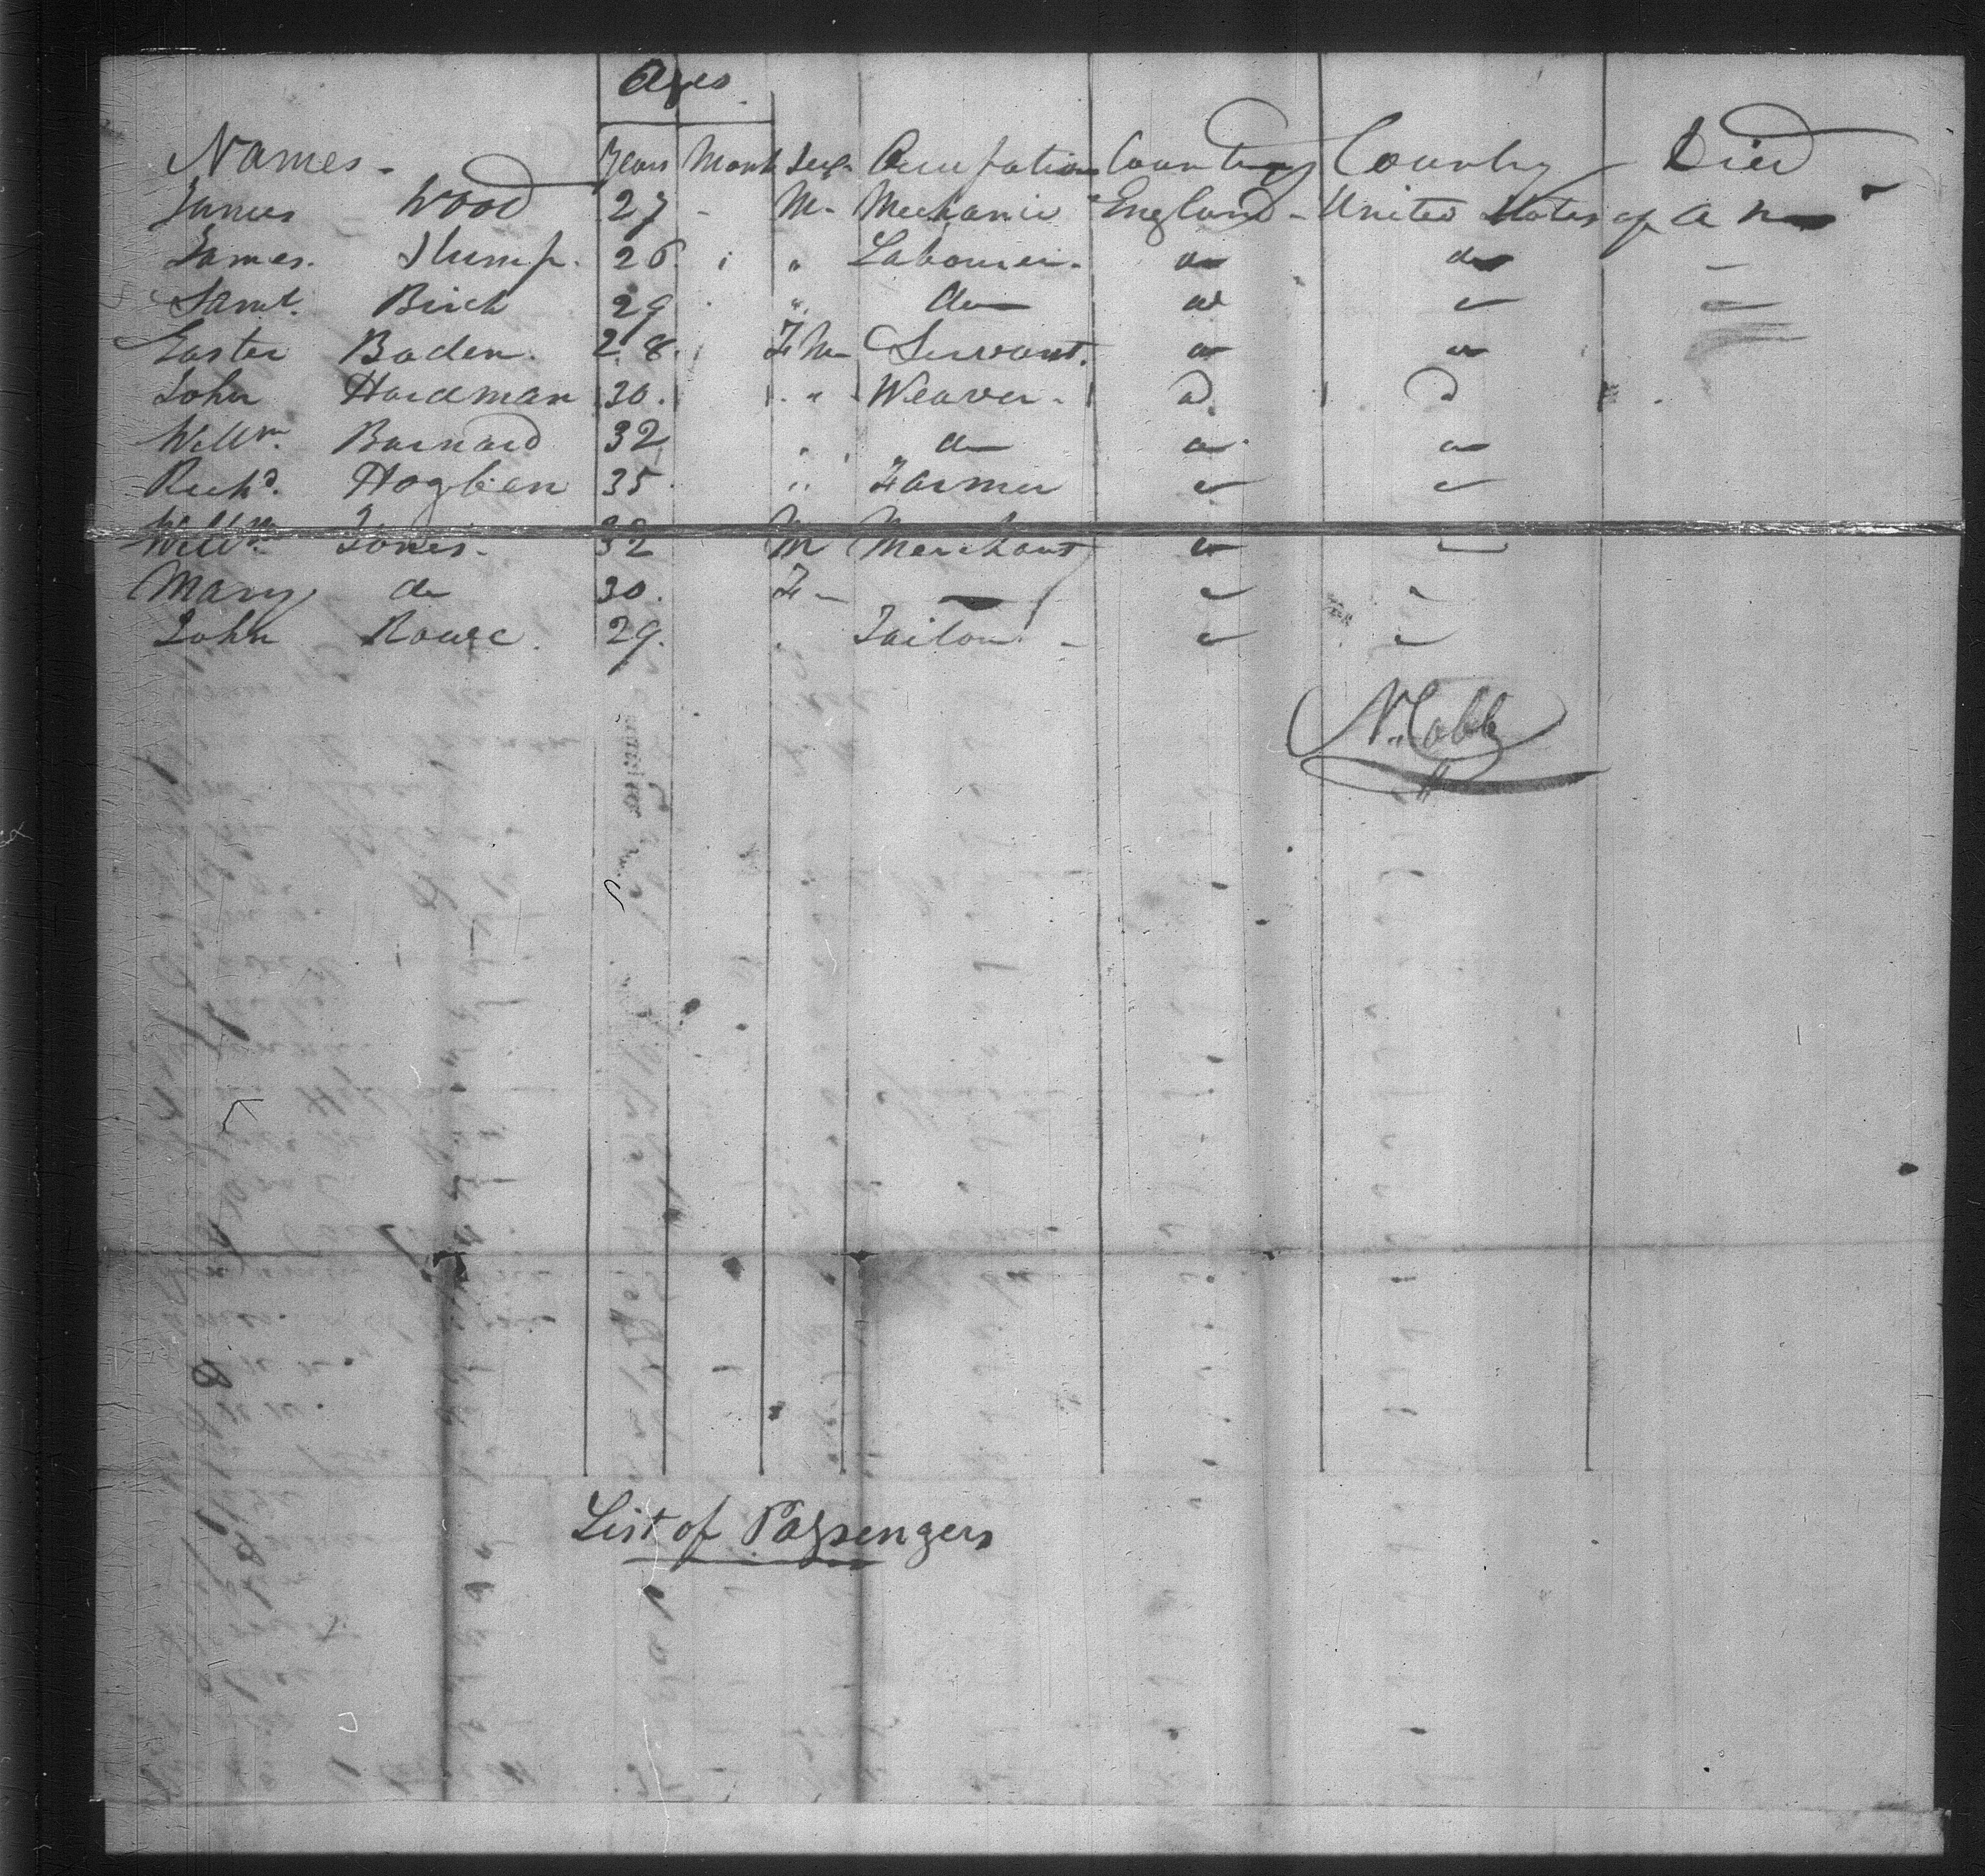 Ages
Names - Years Month Sex Occupation Country Country Died
James - Wood 27 - M - Mechanic England - United States of A
James. Stump. 26. " Labourer. do do -
Saml. Birch 29 " do do " -
Easter Boden. 28. F M Servant. do do
John Hardman 30. " Weaver - do do
Willm. Barnard 32 " do do do
Richd. Hogben 35 " Farmer " "
Willm. Jones - 32 M Merchant " "
Mary do 30. F - — " "
John Rouse. 29. " Tailor - " "
N. Cobb
List of Passengers